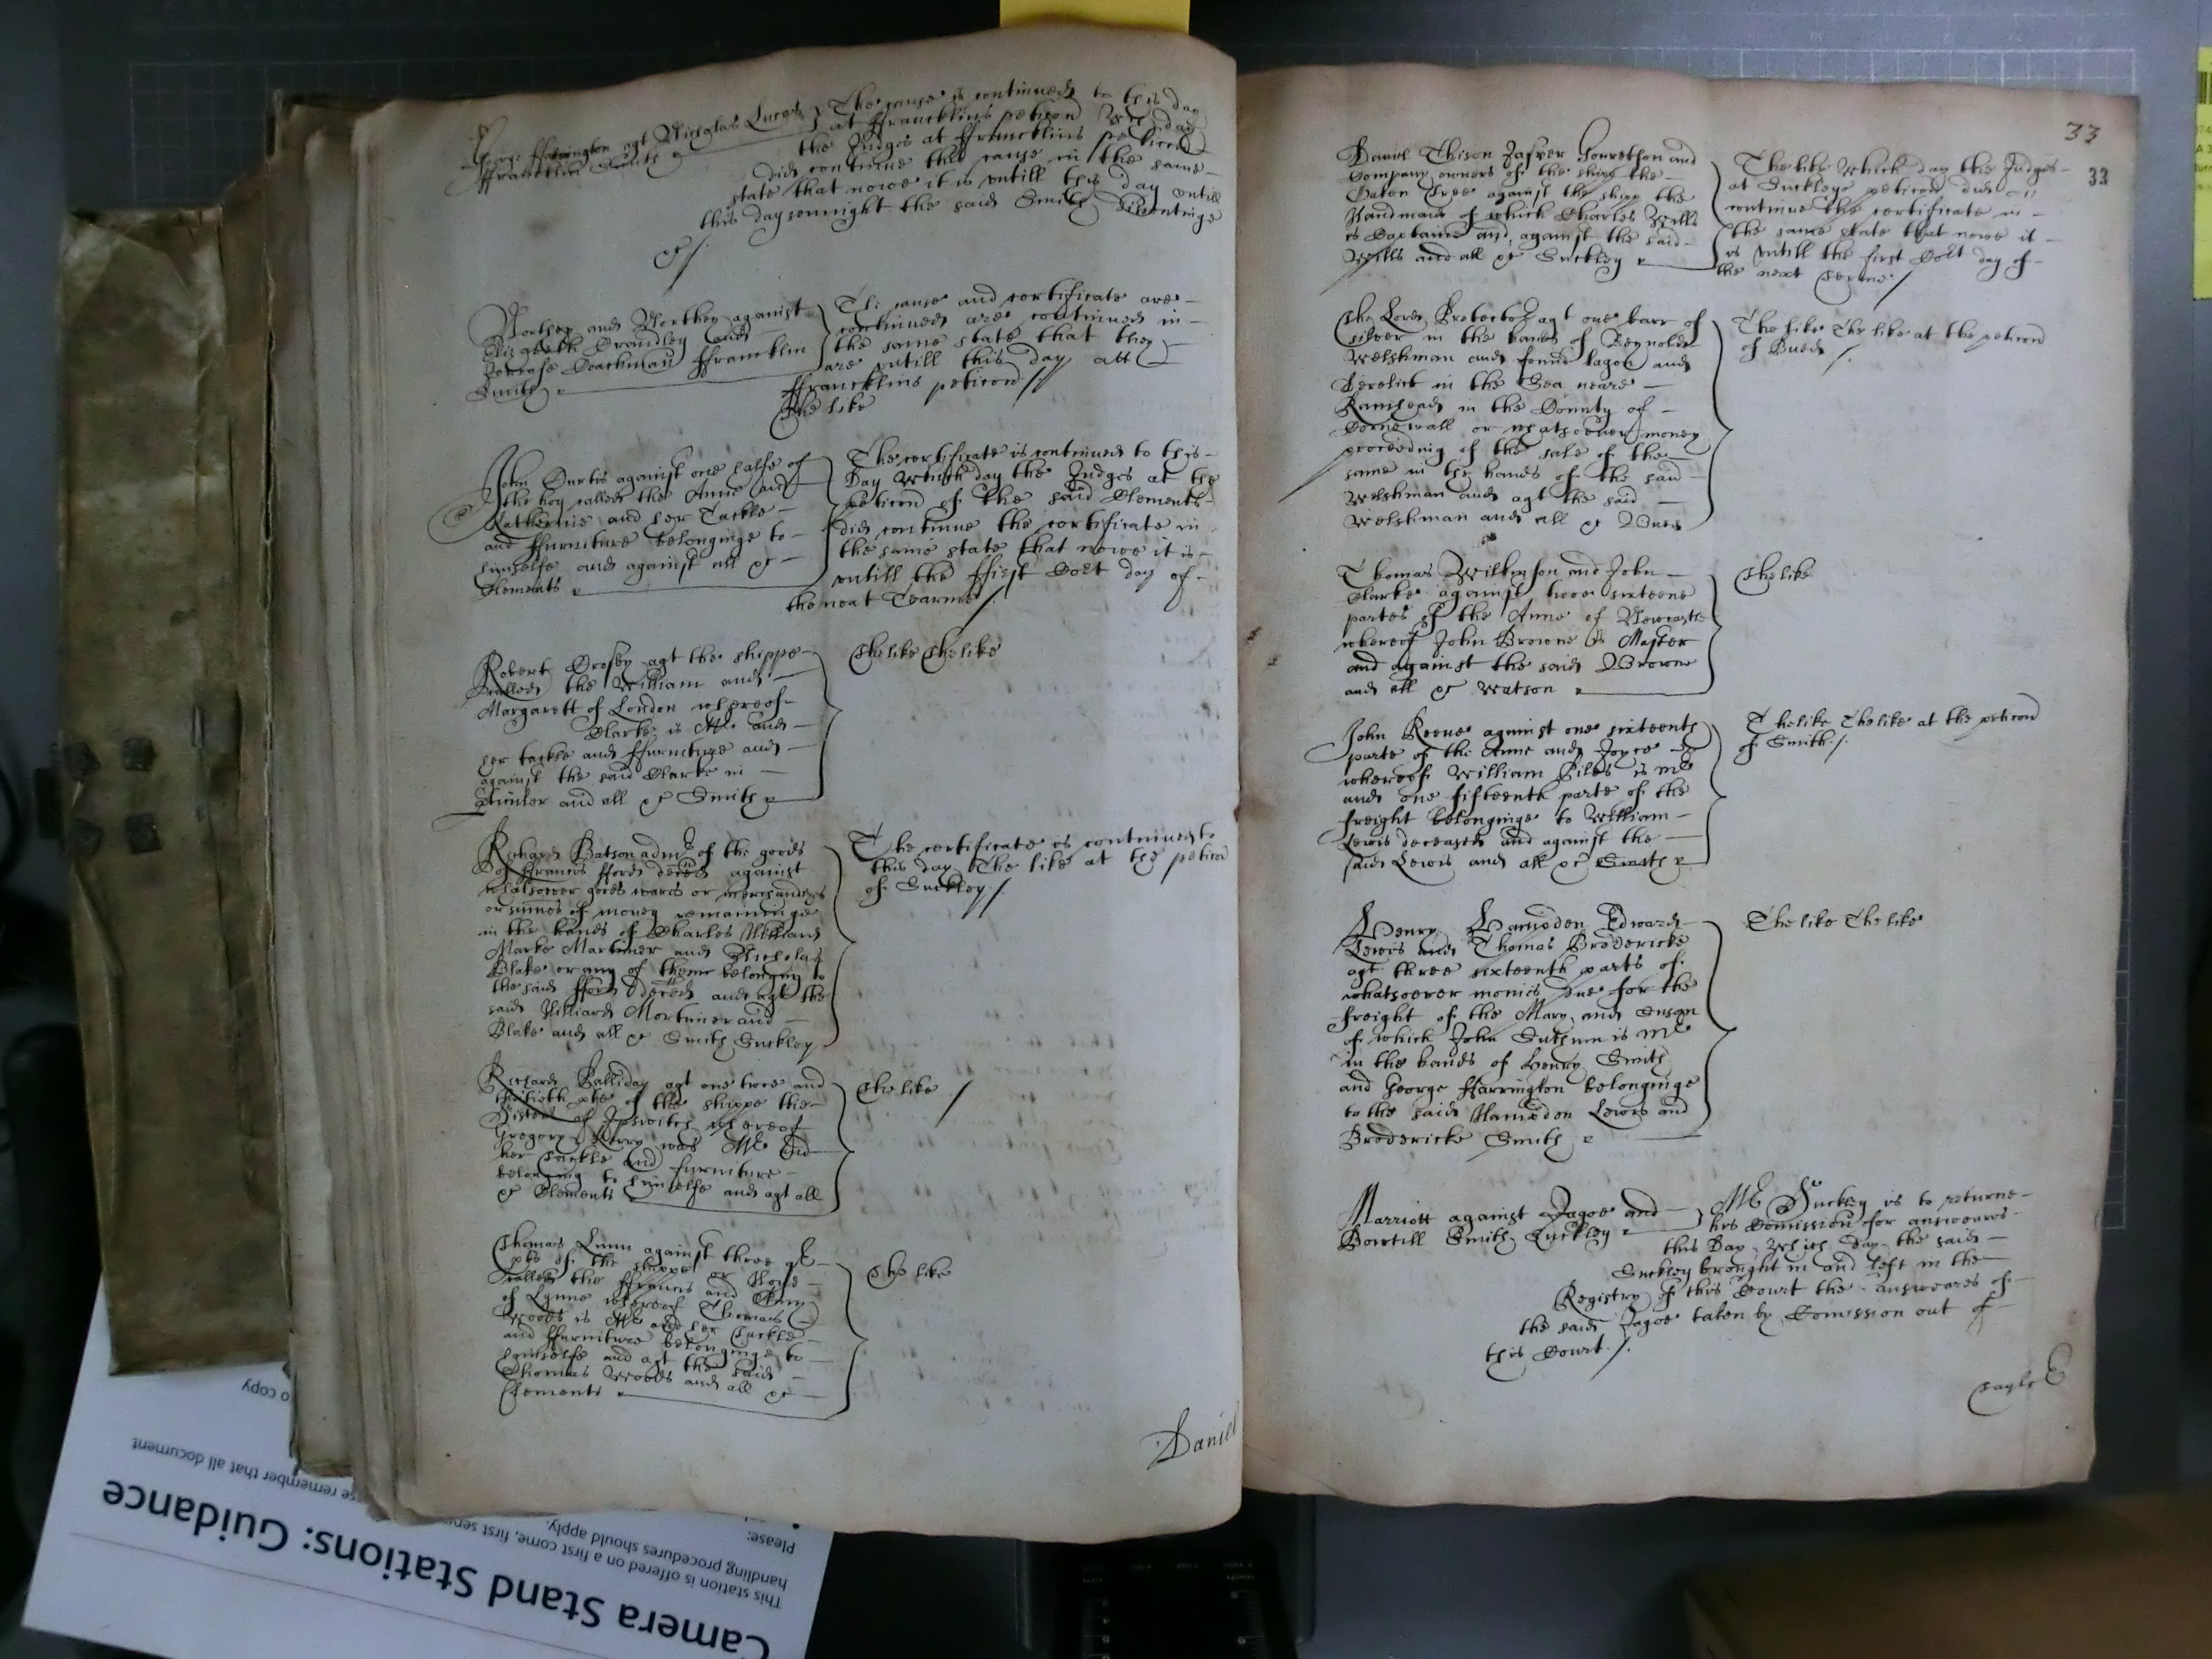 George ffarrington agt Nicholas Lucas
ffrancklin Smith
The cause is continued to this day
at ffrancklins peticon Wch day
the Judges at ffrancklins peticon
did continue this cause in the same
state that nowe it is untill this day untill
this day sennight the said Smith dissentinge
&c/.
Northey and Northey against
Elizabeth Brandley and
Coachman ffrancklin
Smith
The cause and certificate are
continued are continued in
the same state that they
are untill this day att
ffrancklins peticon//
The like
John Curtis against one halfe of
the hoy called the Anne and
Katherine and her Tackle
and ffurniture belonginge to
himselfe and against all &c
Clements
The certificate is continued to this
Day Which day the Judges at the
peticon of the said Clements
did continue the certificate in
the same state that nowe it is
untill the ffirst Cort day of
the next Tearme/.
Robert Crosby agt the shippe
called the William and
Margarett of London whereof
Clarke is Mr and
her tackle and ffurniture and
against the said Clarke in
pticuler and all &c Smith
The like The like
Richard Batson admr of the goods
of ffrancis fford decd against
whatsoever goods wares or merchandizes
or summes of money remaininge
in the hands of Charles Hilliard
Marke Mortimer and Nicholas
Blake or any of them belonging to
the said fford decd and agt the
said Hilliard Mortimer and
Blake and all &c Smith Suckley
The certificate is continued to
this day The like at the peticon
of Suckley//
Richard Halliday agt one twoe and
thirtieth pte of the shippe the
Sisters of Ipswitch whereof
Gregory was Mr and
her Tackle and furniture
belonging to himselfe and agt all
&c Clements
The like /
Thomas Lunn against three
pts of the shippe or
called the ffrancis and
of Lynne whereof Thomas
Woods is Mr and her Tackle
and ffurniture belonginge to
himselfe and agt the said
Thomas Woods and all &c
Clements
The like
Daniel
33
33
Daniel Thison Jasper and
Company owners of the shipp the
Oaken Tree against the shipp the
Handmaid of which Charles Wills
is Captaine and against the said
Wills and all &c Suckley
The like Which day the Judges
at Suckleys peticon did
continue the certificate in
the same state that nowe it
is untill the first Cort day of
the next terme/
The Lord Protector agt one barr of
silver in the hands of Reynolds
Welshman and found lagon and
Derelict in the Sea neare
Ramhead in the County of
Cornewall or whatsoever money
proceeding of the sale of the
same in the hands of the said
Welshman and agt the said
Welshman and all &c Budd
The like The like at the peticon
of Budd /.
Thomas Wilkinson and John
Clarke against twoe sixteene
partes of the Anne of Newcastle
whereof John Browne is Master
and against the said Browne
and all &c Watson
The like
John Keeve against one sixteenth
parte of the Anne and Joyce
whereof William Pile is Mr
and one fifteenth parte of the
freight belonginge to William
Lewis deceased and against the
said Lewis and all &c Smith
The like The like at the peticon
of Smith./.
Henry Hampden Edward
Lewis and Thomas Brodericke
agt three sixteenth parts of
whatsoever monies due for the
freight of the Mary and Susan
of which John Suthum is Mr
in the hands of Henry Smith
and George ffarrington belonginge
to the said Hampden Lewis and
Brodericke Smith
The like The like
Marriott against Jagoe and
Bowtill Smith Suckley
Mr Suckley is to returne
his Comission for answeares
this Day Which day the said
Suckley brought in and left in the
Registry of this Court the answeares of
the said Jagoe taken by Comission out of
this Court./.
Camera Stand Stations: Guidance
This station is offered on a first come, first
handling procedures should apply.
Please:
remember that all document
copy